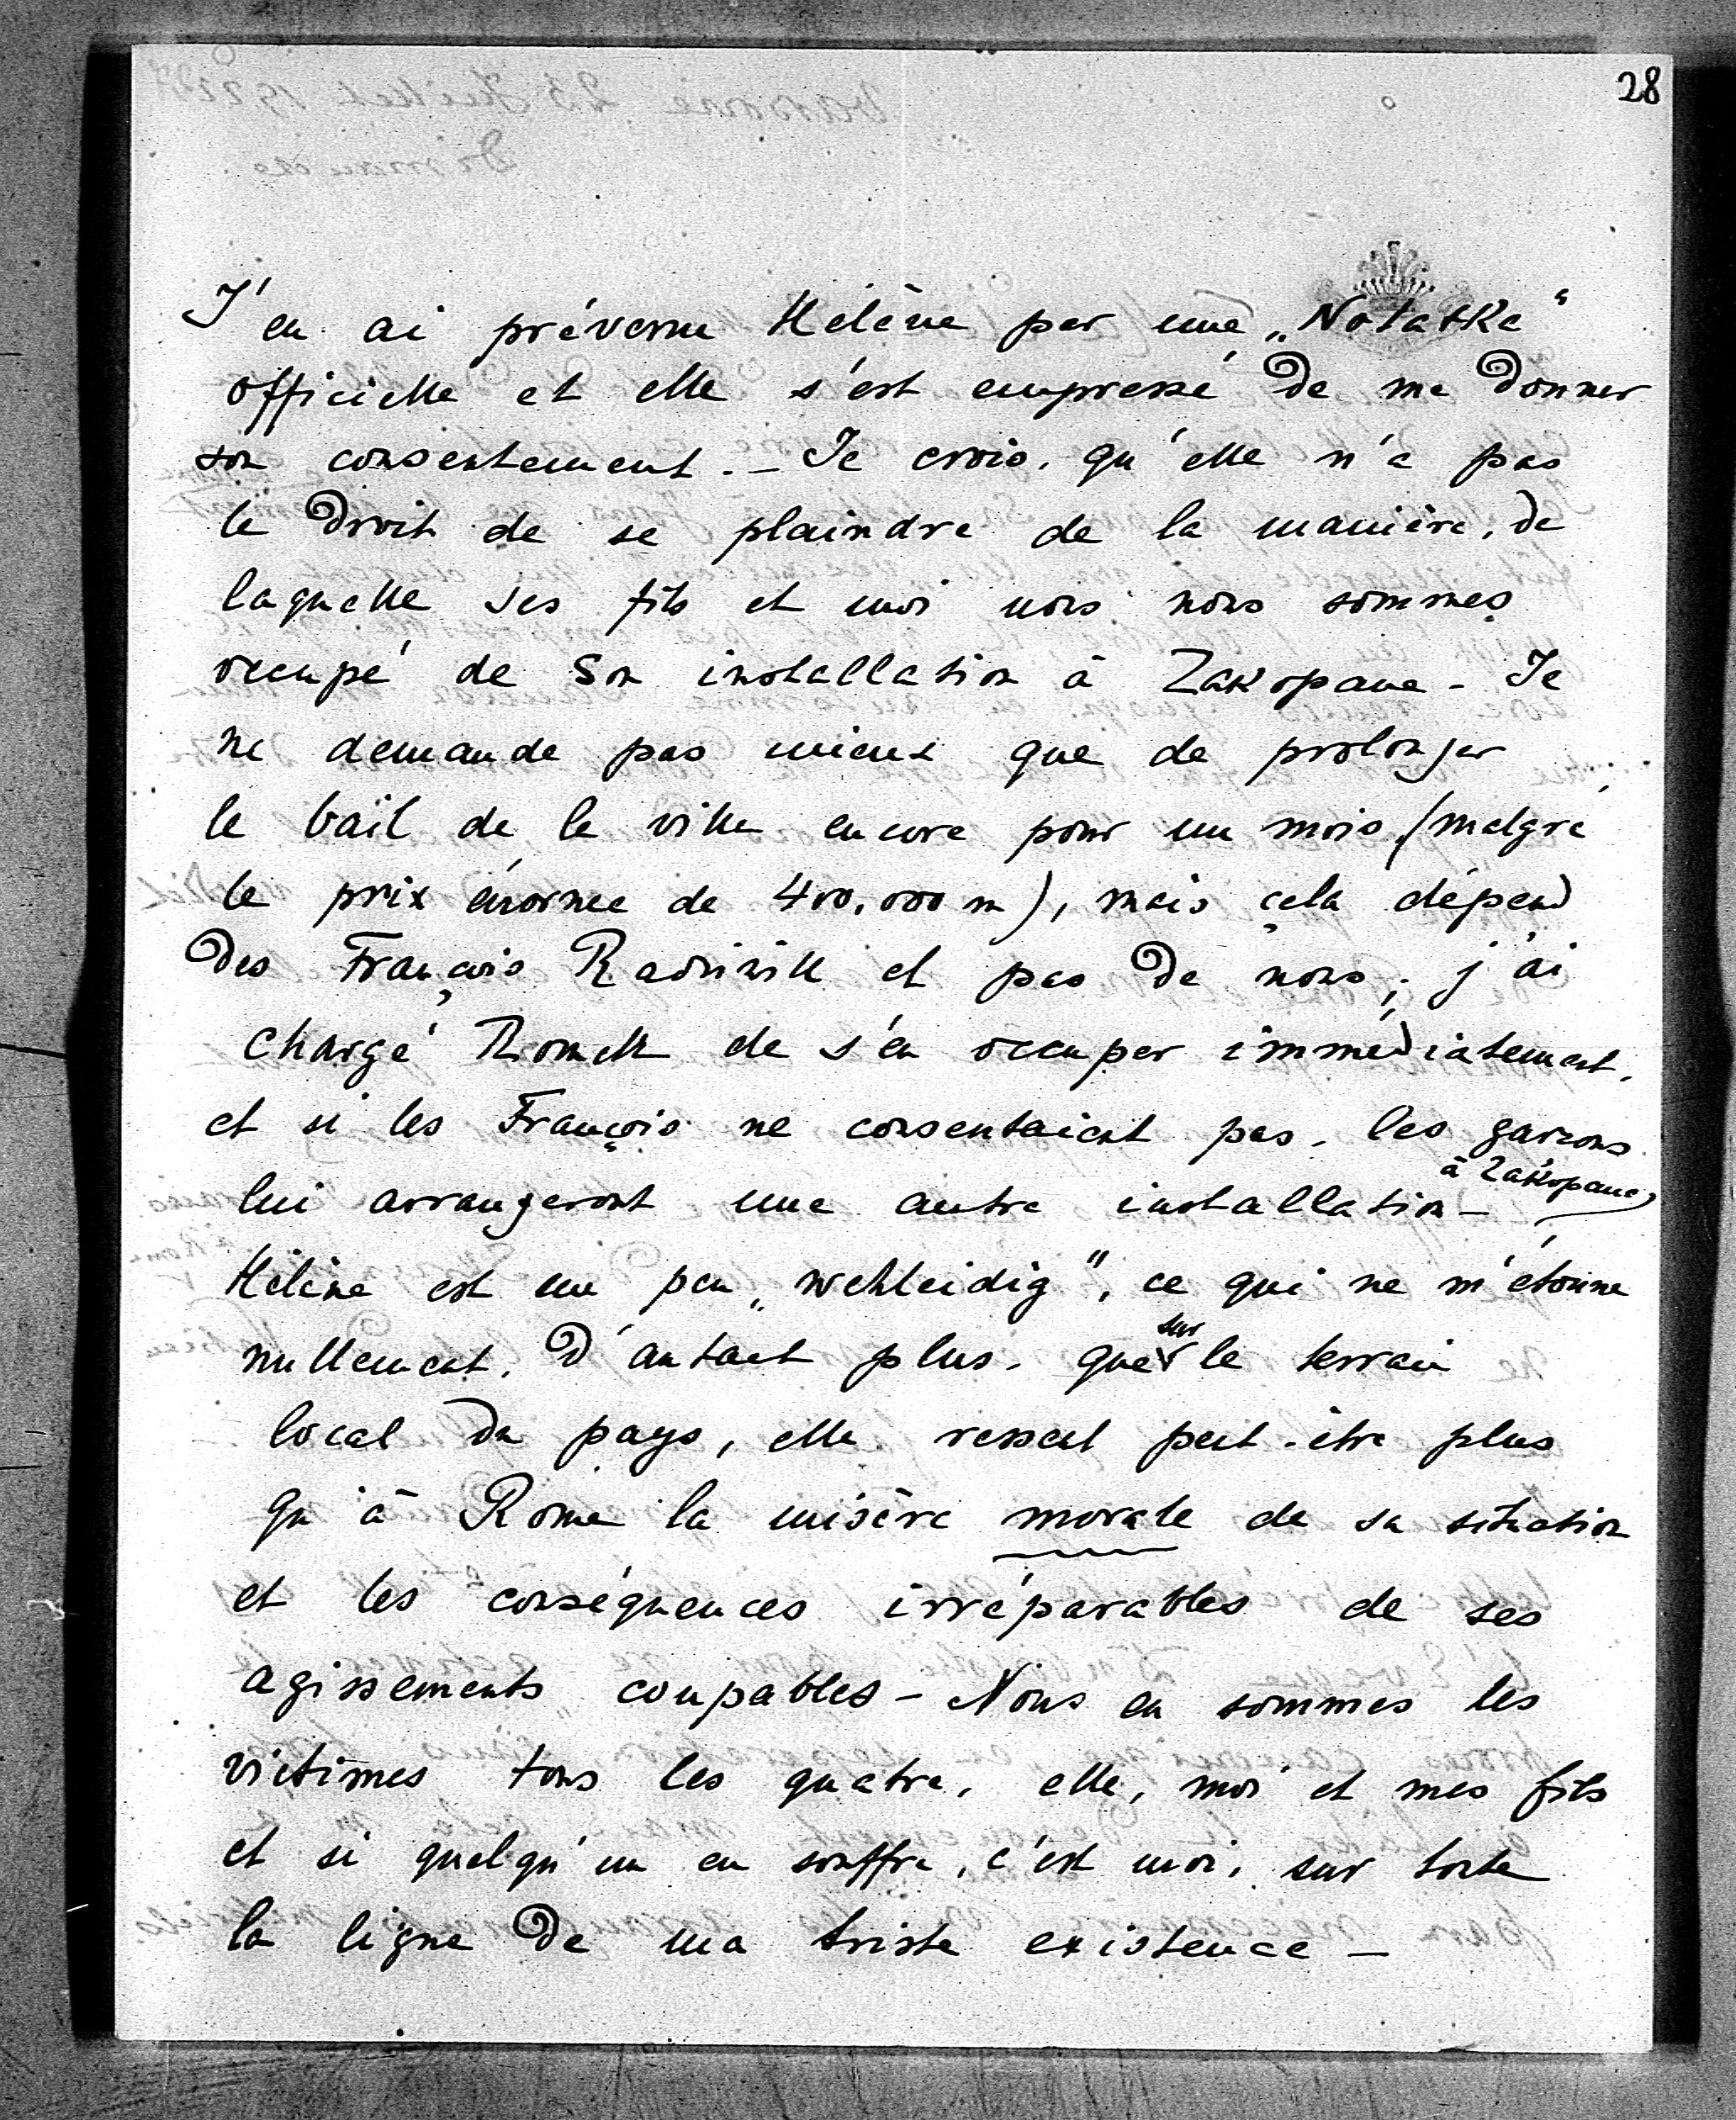 28
J'en ai prévenu Hélène par une „Notatke“
officielle et elle s'est empressé de me donner
son consentement. – Je crois, qu'elle n'a pas
le droit de se plaindre de la manière, de
laquelle ses fils et moi nous nous sommes
occupé de son installation à Zakopane – Je
ne demande pas mieux que de prolonger
le bail de la villa encore pour un mois (malgré
le prix énorme de 400.000 m), mais cela dépend
des François Radziwill et pas de nous; j'ai
chargé de s'en occuper immédiatement,
et si les François ne consentaient pas, les garçons
lui arrangeront une autre installation – à Zakopane
Hélène est un peu „wehleidig“, ce qui ne m'étonne
nullement, d'autant plus, que sur le terrain
local du pays, elle ressent peut-être plus
qu'à Rome la misère morale de sa situation
et les conséquences irréparables de ses
agissements coupables – Nous en sommes les
victimes tous les quatre, elle, moi et mes fils
et si quelqu'un en souffre, c'est moi, sur toute
la ligne de ma triste existence –